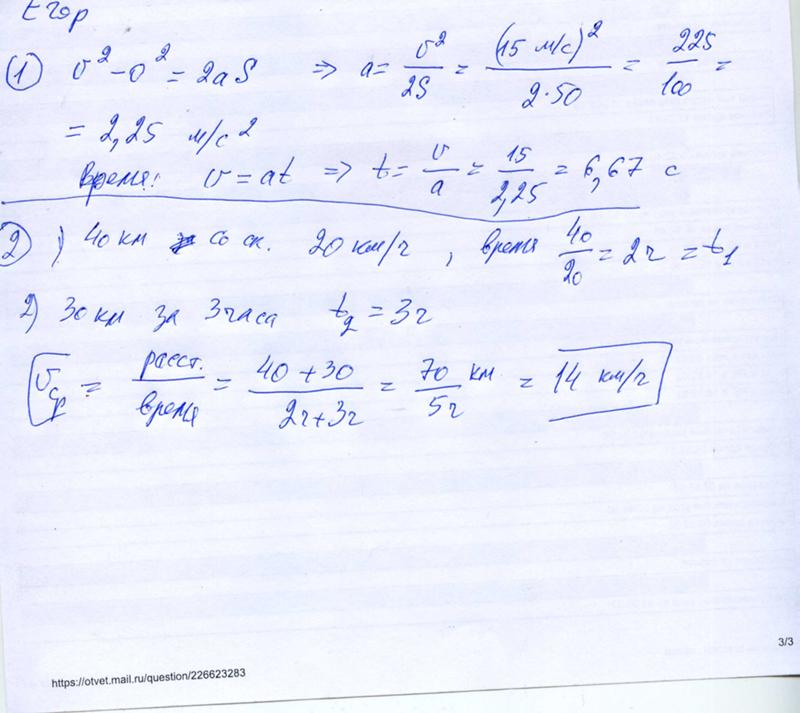 Егор
① v² - 0² = 2aS => a = v²/2S = (15 м/с)²/2·50 = 225/100 =
= 2,25 м/с²
Время: v = at => t = v/a = 15/2,25 = 6,67 с
② ) 40 км со ск. 20 км/ч , время 40/20 = 2ч = t₁
2) 30 км за 3 часа t₂ = 3ч
vср = расст./время = 40 + 30/2ч + 3ч = 70/5ч км = 14 км/ч
3/3
https://otvet.mail.ru/question/226623283